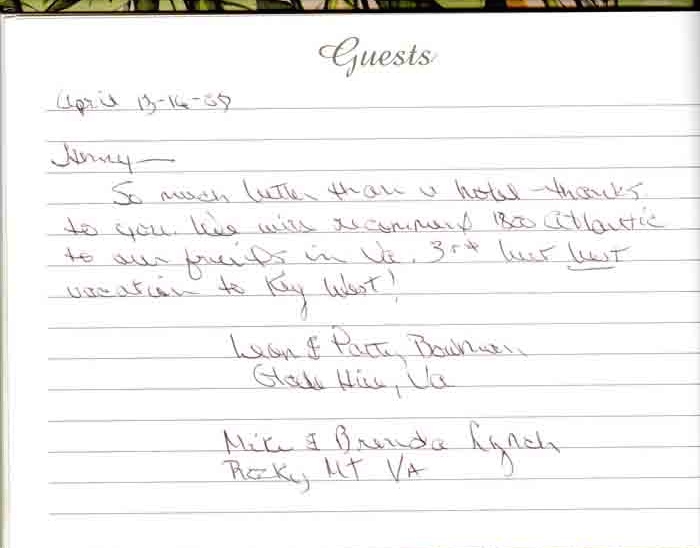 Guests
April 13-16-05
Henry—
So much better than a hotel - thanks
to you. We will recommend 1800 Atlantic
to our friends in Va. 3rd but best
vacation to Key West!
Leon & Patty Bowman
Glade Hill, Va
Mike & Brenda Lynch
Rocky MT VA